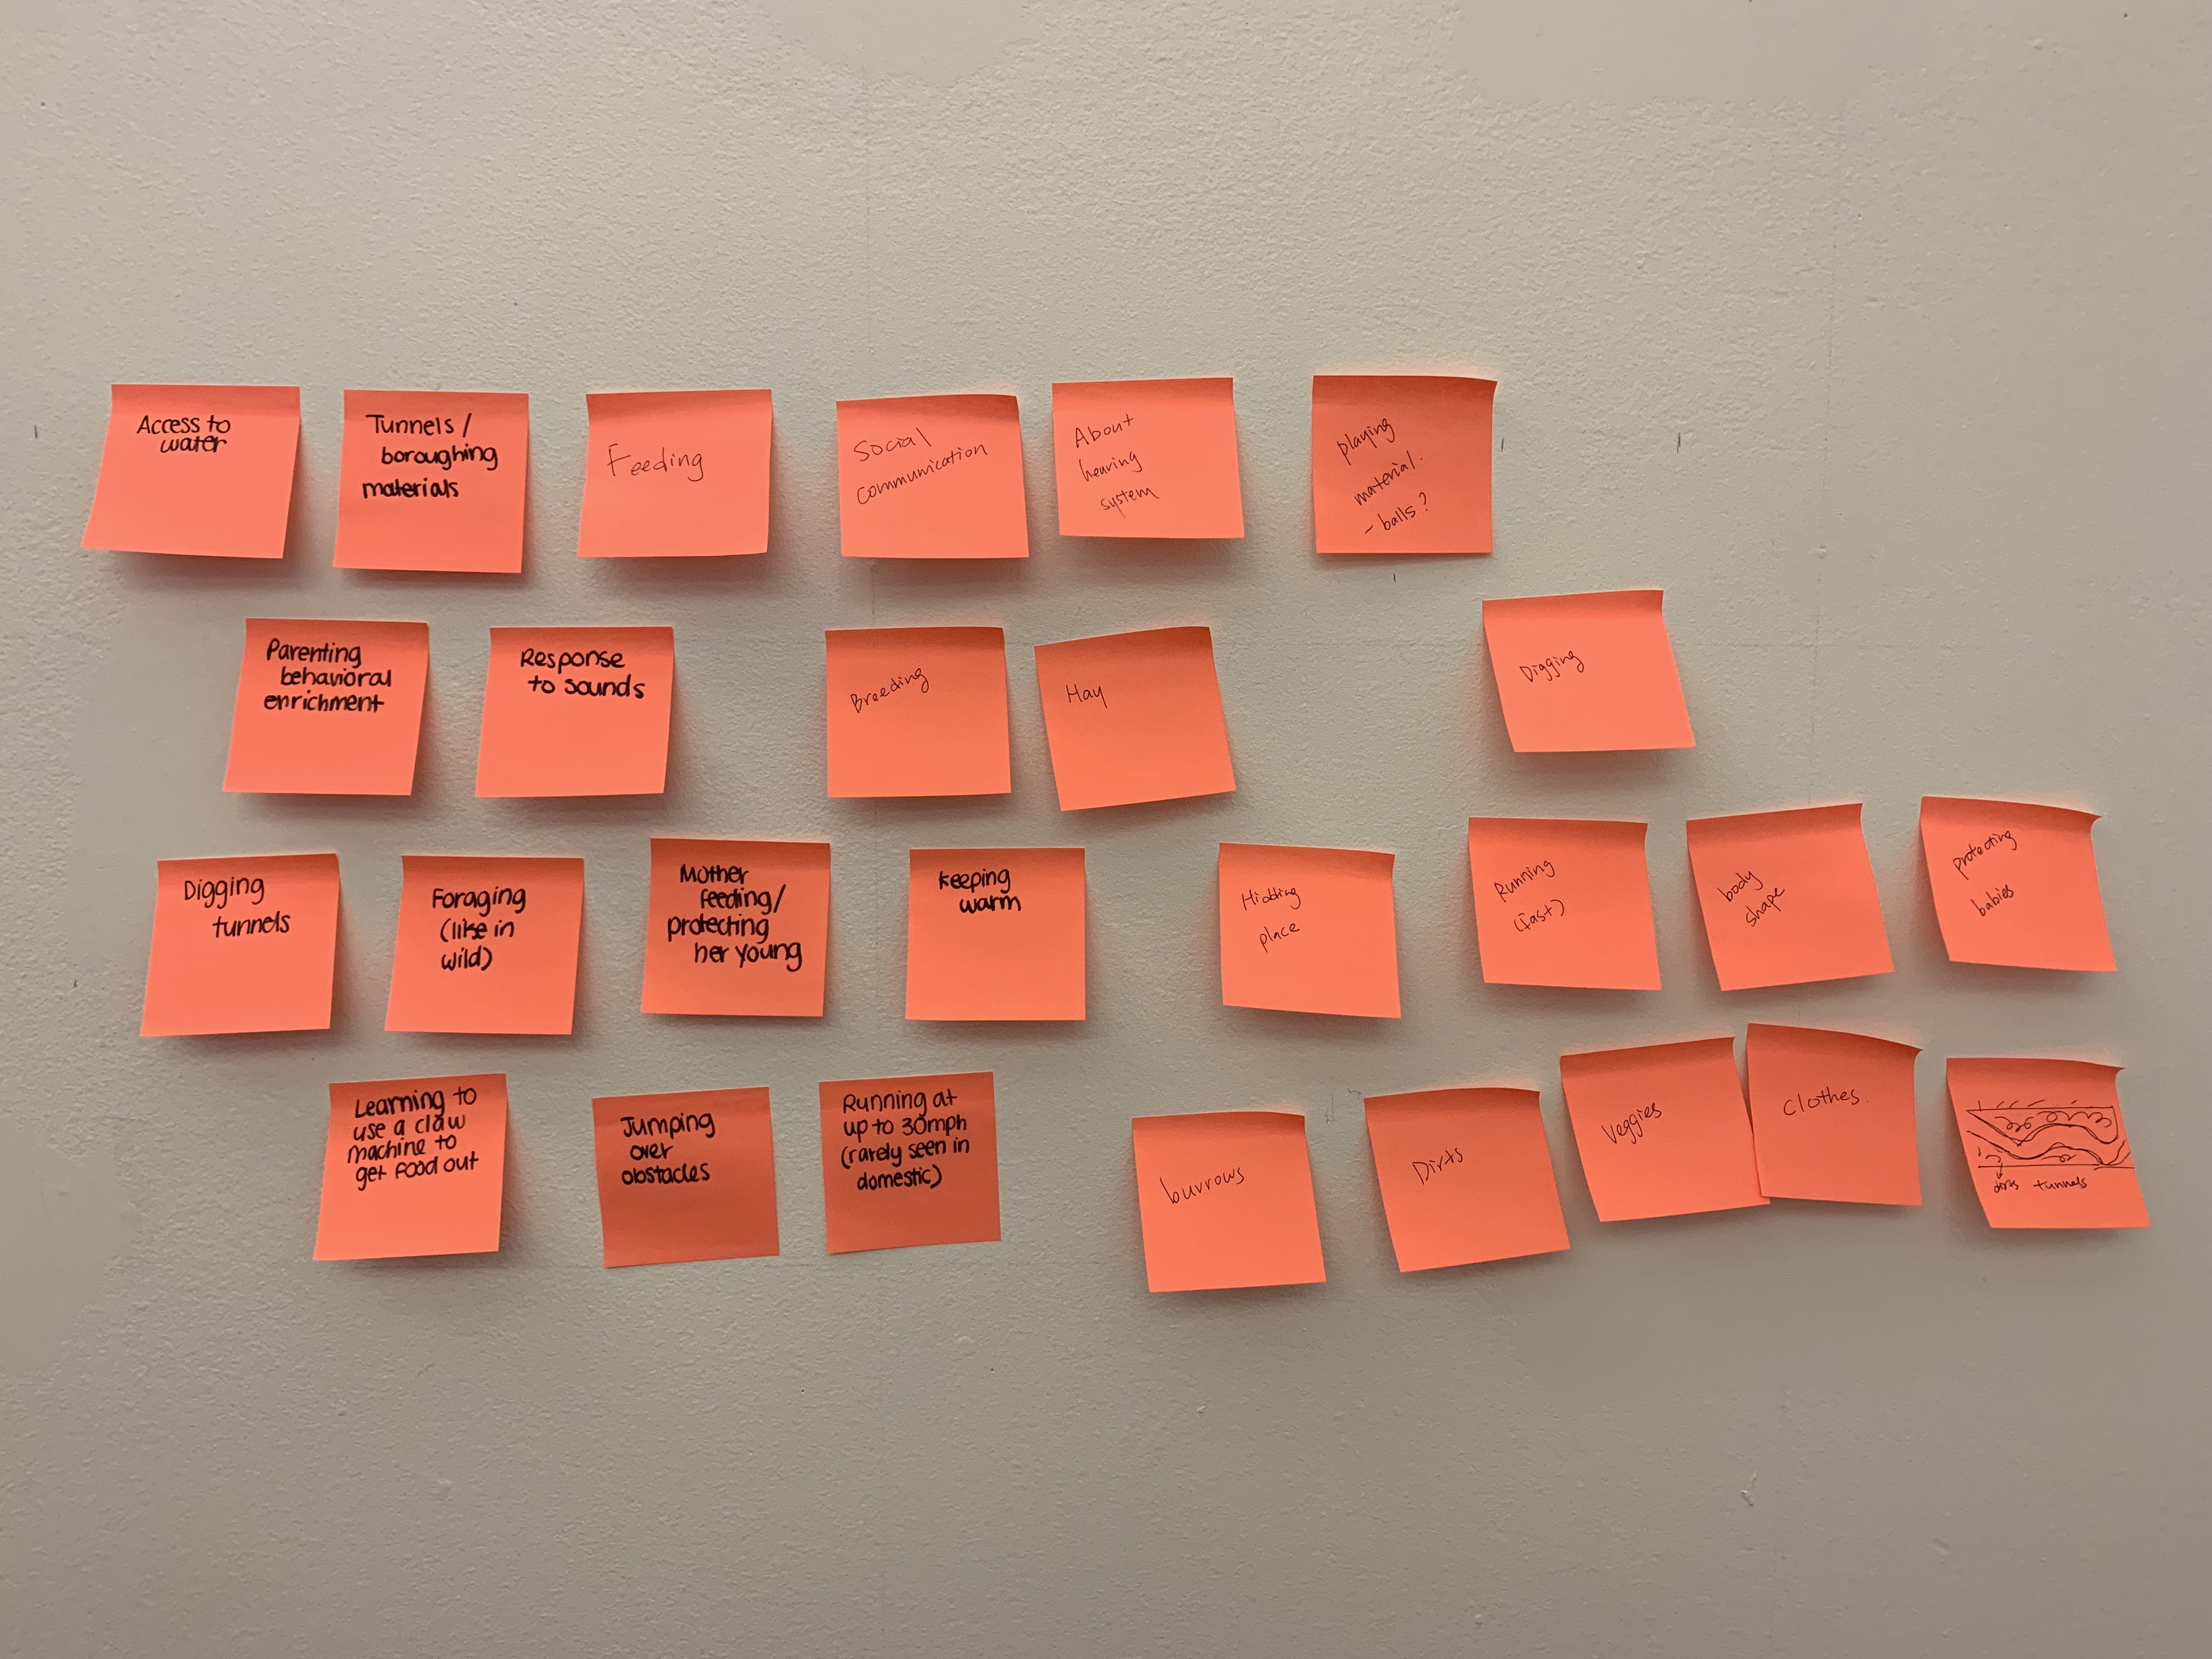 Access to
water
Tunnels /
boroughing
materials
Feeding
Social
communication
About
hearing
system
playing
material.
- balls?
Parenting
behavioral
enrichment
Response
to sounds
Breeding
Hay
Digging
Digging
tunnels
Foraging
(like in
wild)
Mother
feeding/
protecting
her young
keeping
warm
Hidding
place
Running
(fast)
body
shape
protecting
babies
Learning to
use a claw
machine to
get food out
Jumping
over
obstacles
Running at
up to 30mph
(rarely seen in
domestic)
burrows
Dirts
Veggies
Clothes.
dirts tunnels